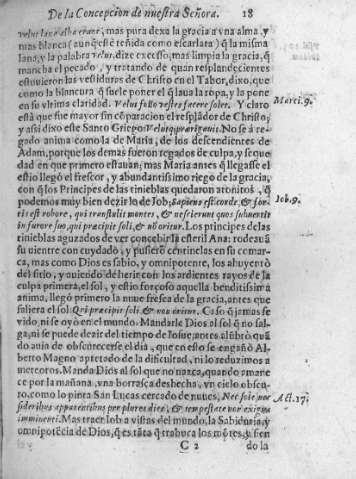 De la Concepcion de nuestra Señora. 18
mas pura dexo la gracia a vna alma, y
mas blanca (aunq̃ estè teñida como escarlata) q̃ la misma
lana, y la palabra velut, dize excesso, mas limpia la gracia, q̃
mancha el pecado, y tratando de quan resplandecientes
estuuieron las vestiduras de Christo en el Tabor, dixo, que
como la blancura q̃ suele poner el q̃ laua la ropa, y la pone
en su vltima claridad. Velut fullo vestro facere solet. Y claro
Marci. 9.
està que fue mayor sin cõparacion el resplãdor de Christo;
y assi dixo este Santo Griego No se á re-
gado anima como la de Maria, de los descendientes de
Adam, porque los demas fueron regados de culpa, y seque
dad en que primero estauan; mas Maria antes q̃ llegasse el
estio llegó el frescor, y abundantissimo riego de la gracia,
con q̃ los Principes de las tinieblas quedaron atonitos, q̃
podemos muy bien dezir lo de Iob; Sapiens est corde, & for-
Iob. 9.
tis est robore, qui transtulit montes, & nescierunt quos subuertit
in furore suo, qui præcipit soli, & nõ oritur. Los principes de las
tinieblas aguzados de ver concebir la esteril Ana: rodeauã
su vientre con cuydado, y pusierõ centinelas en su comar-
ca, mas como Dios es sabio, y omnipotente, los ahuyentò
del sitio, y queriẽdo deherir con los ardientes rayos de la
culpa primera, el sol, y estio forçoso aquella benditissima
anima, llegó primero la nuue fresca de la gracia, antes que
saliera el sol Qui præcipit soli, & non oritur. Caso q̃ jamas se
vido, ni se oyó en el mundo. Mandarle Dios al sol que no sal-
ga, ni se puede dezir del tiempo de Iosue; antes alũbrò quã
do auia de obscurecerse el dia, que en esto se engañó Al-
berto Magno apretado de la dificultad, ni lo reduzimos a
meteoros. Manda Dios al sol que no nazca, quando amane
ce por la mañana, vna borrasca deshecha, vn cielo obscu-
ro, como lo pinta San Lucas cercado de nuues, Nec sole, nec
Act. 17.
sideribus apparentibus per plures dies, & tempestate non exigua
imminenti. Mas traer lo a vistas del mundo, la Sabiduria, y
omnipotẽcia de Dios, q̃ es tãta q̃ trabuca los mõtes, y sien
C 2 do la